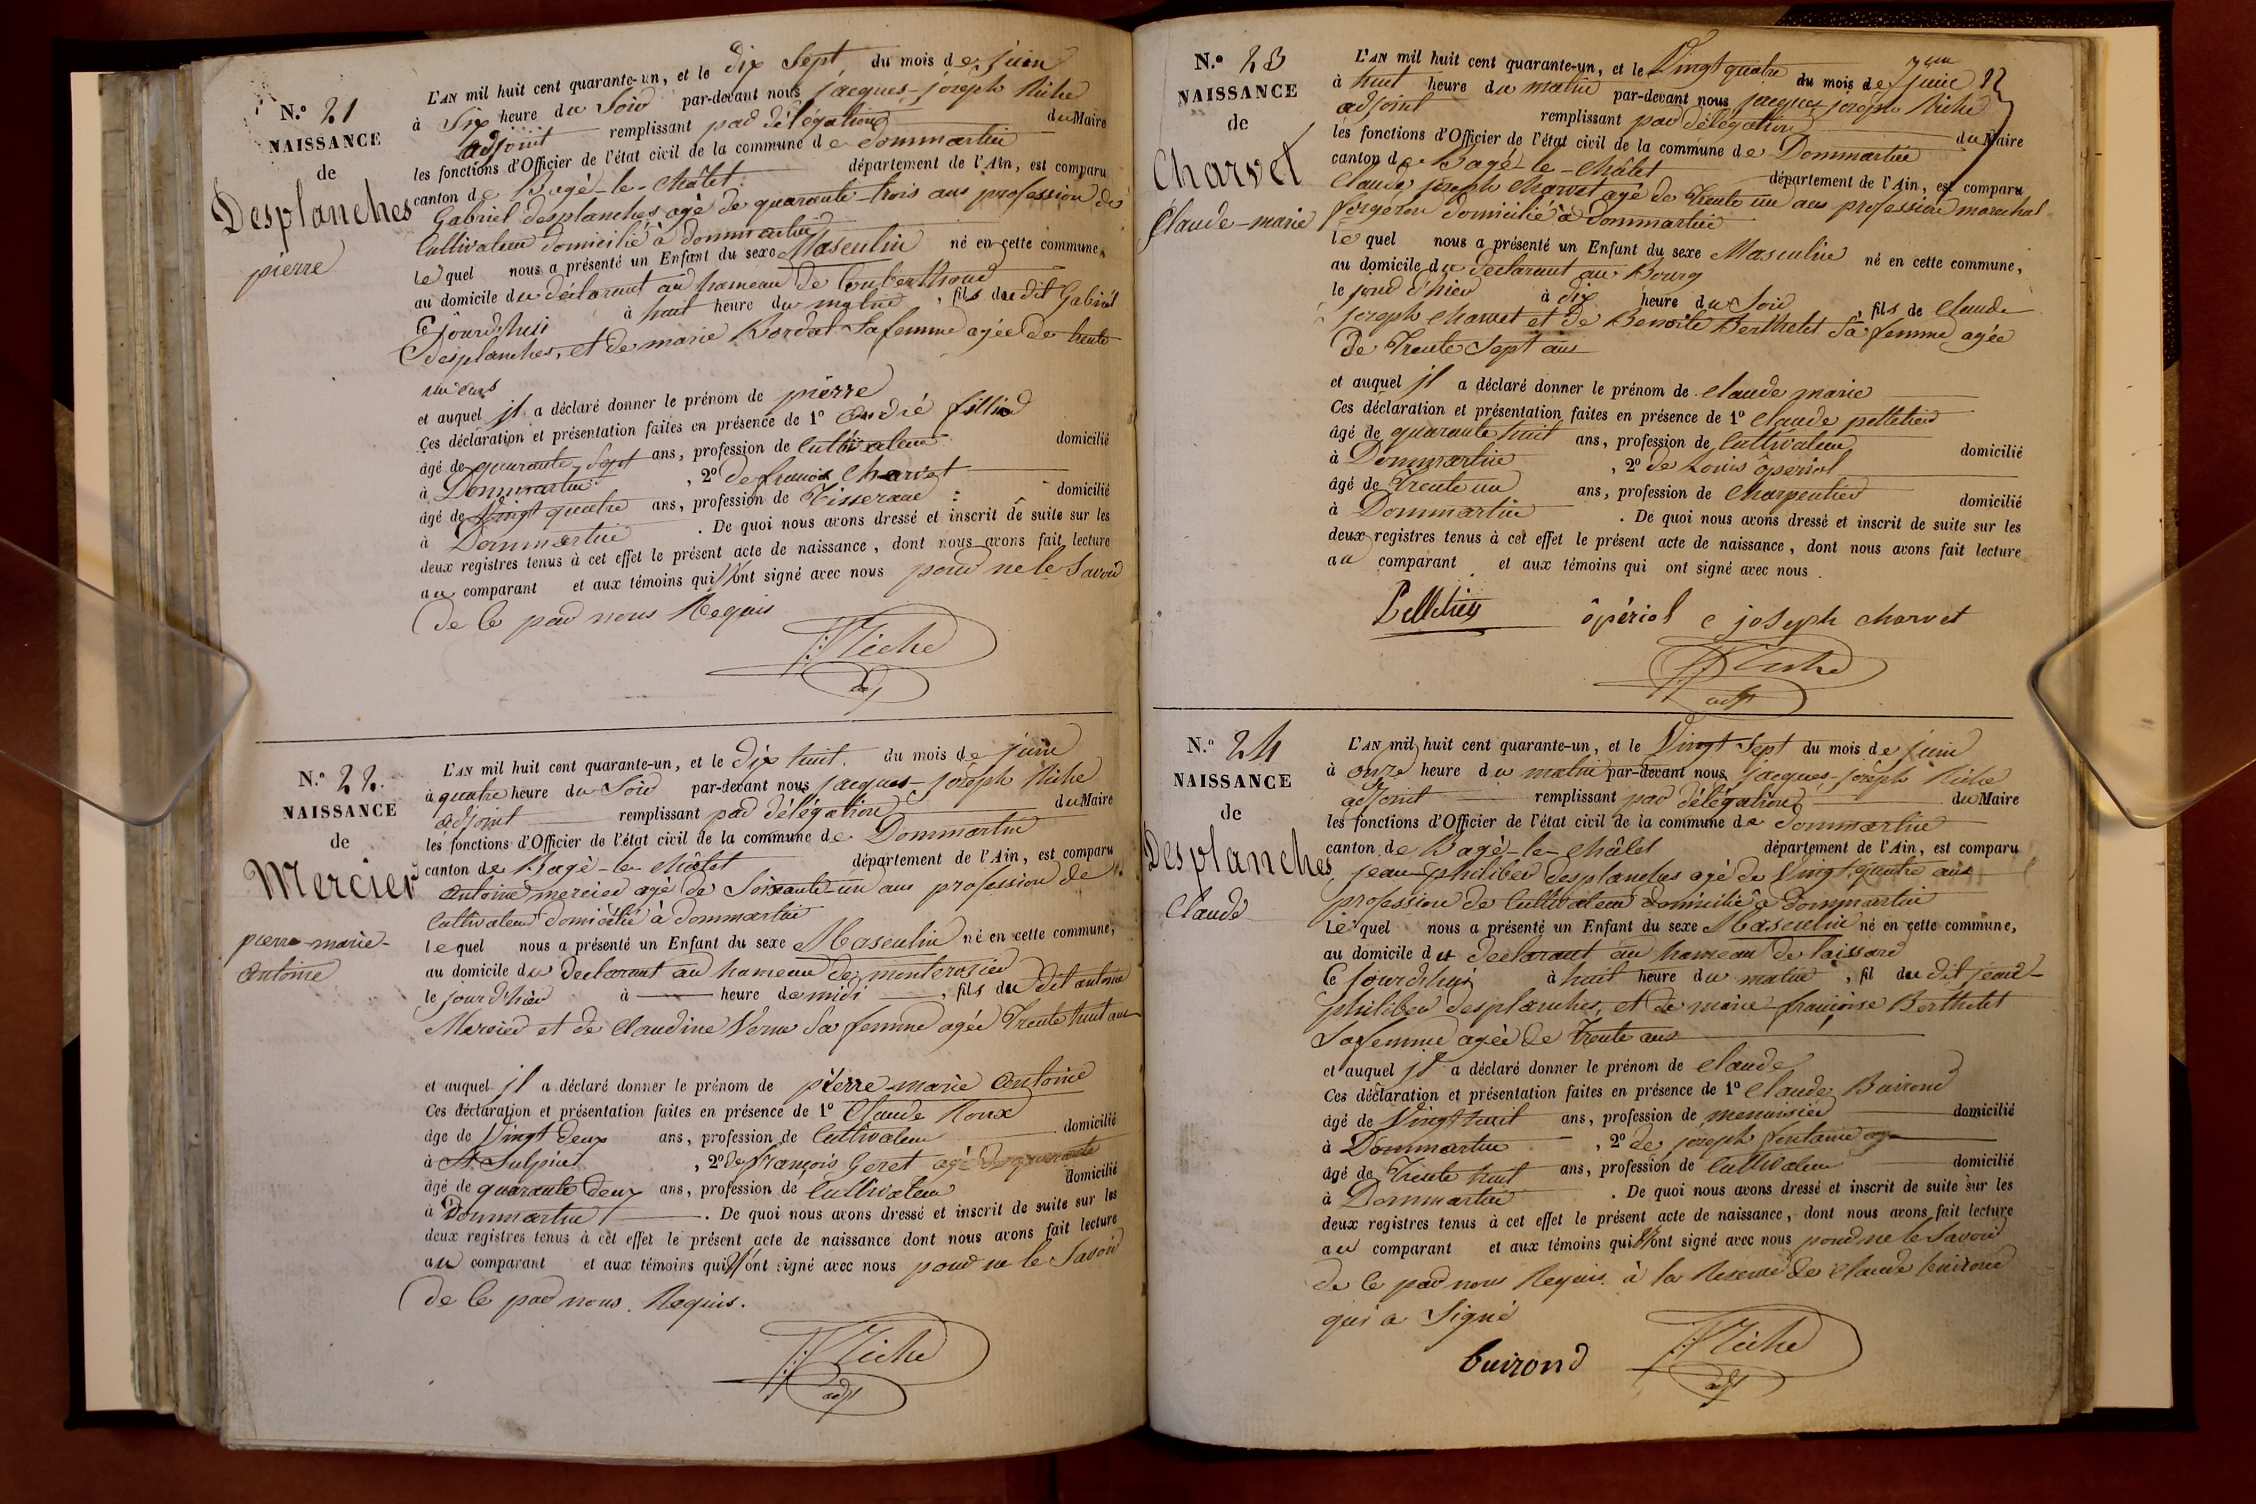 N.o 21
NAISSANCE
de
Desplanches
pierre
L'AN mil huit cent quarante-un, et le dix Sept du mois de juin
à Six heure du Soir par-devant nous jacques-joseph Riche
adjoint remplissant par délégation du Maire
les fonctions d'Officier de l'état civil de la commune de Dommartin
canton de Bagé-le-châtel département de l'Ain, est comparu
Gabriel desplanches agé de quarante-trois ans profession de
Cultivateur domicilié à dommartin
lequel nous a présenté un Enfant du sexe Masculin né en cette commune,
au domicile du déclarant au hameau de
Ce jourd'hui à huit heure du matin, fils du dit Gabriel
desplanches, et de marie Bordat Sa femme agée de trente
un ans
et auquel jl a déclaré donner le prénom de pierre
Ces déclaration et présentation faites en présence de 1o andré fillion
âgé de quarante Sept ans, profession de Cultivateur domicilié
à Dommartin, 2o de francois Charvet
âgé de Vingt quatre ans, profession de Tisserand domicilié
à Dommartin. De quoi nous avons dressé et inscrit de suite sur les
deux registres tenus à cet effet le présent acte de naissance, dont nous avons fait lecture
au comparant et aux témoins qui n'ont signé avec nous pour ne le Savoir
de Ce par nous Requis
JJ Riche
adj
N.o 22.
NAISSANCE
de
Mercier
pierre-marie-
antoine
L'AN mil huit cent quarante-un, et le dix huit. du mois de juin
à quatre heure du Soir par-devant nous jacques-joseph Riche
adjoint remplissant par délégation du Maire
les fonctions d'Officier de l'état civil de la commune de Dommartin
canton de Bagé-le-châtel département de l'Ain, est comparu
antoine mercier agé de Soixante-un ans profession de
Cultivateur domicilié à dommartin
lequel nous a présenté un Enfant du sexe Masculin né en cette commune,
au domicile du déclarant au hameau de monterozier
le jour d'hier à heure de midi, fils du dit antoine
Mercier et de Claudine Verne Sa femme agée Trente huit ans
et auquel jl a déclaré donner le prénom de pierre-marie antoine
Ces déclaration et présentation faites en présence de 1o Claude Roux
âge de Vingt deux ans, profession de Cultivateur domicilié
à St. Sulpice, 2o de françois Geret agé de quarante
âgé de quarante deux ans, profession de Cultivateur domicilié
à Dommartin. De quoi nous avons dressé et inscrit de suite sur les
deux registres tenus à cet effet le présent acte de naissance dont nous avons fait lecture
au comparant et aux témoins qui n'ont signé avec nous pour ne le Savoir
de Ce par nous Requis.
JJ Riche
adj
N.o 23
NAISSANCE
de
Charvet
Claude-marie
L'AN mil huit cent quarante-un, et le Vingt quatre du mois de juin
à huit heure du matin par-devant nous jacques-joseph Riche
adjoint remplissant par délégation du Maire
les fonctions d'Officier de l'état civil de la commune de Dommartin
canton de Bagé-le-châtel département de l'Ain, est comparu
Claude joseph Charvet agé de Trente un ans profession maréchal
forgeron domicilié à dommartin
lequel nous a présenté un Enfant du sexe Masculin né en cette commune,
au domicile du déclarant au Bourg
le jour d'hier à dix heure du Soir, fils de Claude
joseph Charvet et de Benoite Berthelet Sa femme agée
de Trente Sept ans
et auquel jl a déclaré donner le prénom de Claude marie
Ces déclaration et présentation faites en présence de 1o Claude pelletier
âgé de quarante huit ans, profession de Cultivateur domicilié
à Dommartin, 2o de Louis ôpériol
âgé de Trente un ans, profession de Charpentier domicilié
à Dommartin. De quoi nous avons dressé et inscrit de suite sur les
deux registres tenus à cet effet le présent acte de naissance, dont nous avons fait lecture
au comparant et aux témoins qui ont signé avec nous.
Pelletier ôpériol c joseph charvet
JJ Riche
adj
N.o 24
NAISSANCE
de
Desplanches
Claude
L'AN mil huit cent quarante-un, et le Vingt Sept du mois de juin
à onze heure du matin par-devant nous jacques-joseph Riche
adjoint remplissant par délégation du Maire
les fonctions d'Officier de l'état civil de la commune de dommartin
canton de Bagé-le-châtel département de l'Ain, est comparu
jean-philiber desplanches agé de Vingt quatre ans
profession de Cultivateur domicilié à dommartin
lequel nous a présenté un Enfant du sexe Masculin né en cette commune,
au domicile du déclarant au hameau de
Ce jourd'hui à huit heure du matin, fil du dit jean-
philiber desplanches, et de marie françoise Berthelet
Sa femme agée de trente ans
et auquel jl a déclaré donner le prénom de Claude
Ces déclaration et présentation faites en présence de 1o Claude Buirond
âgé de Vingt huit ans, profession de menuisier domicilié
à Dommartin, 2o de joseph fontaine
âgé de Trente huit ans, profession de Cultivateur domicilié
à Dommartin. De quoi nous avons dressé et inscrit de suite sur les
deux registres tenus à cet effet le présent acte de naissance, dont nous avons fait lecture
au comparant et aux témoins qui n'ont signé avec nous pour ne le Savoir
de Ce par nous Requis à la Reserve de Claude buirond
qui a Signé
buirond JJ Riche
adj